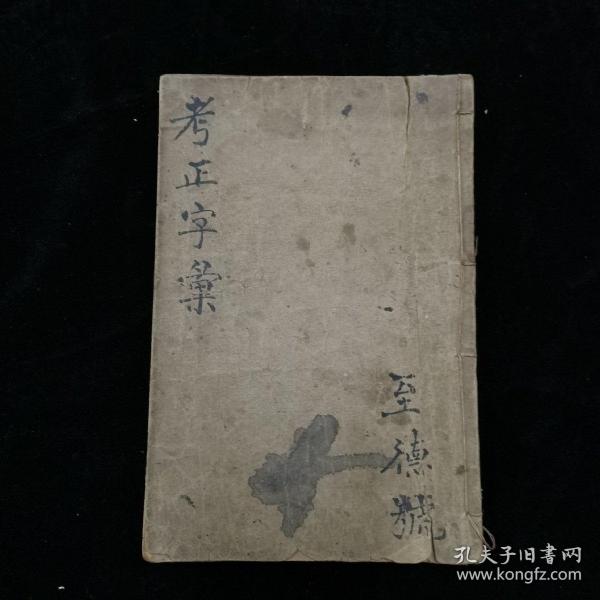 考正字彙
至德號
孔夫子旧书网
www.kongfz.com